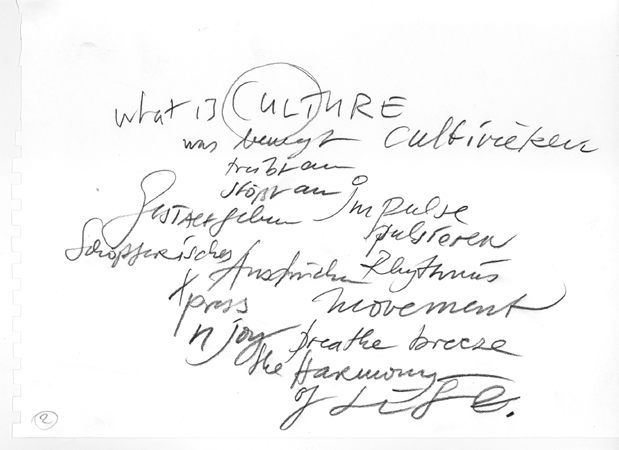 what is CULTURE
was bewegt cultivieren
treibt an
stößt an impulse
GESTALT geben pulsieren
Schöpferisches Rhythmus
xpress movement
n joy breathe breeze
the Harmony
of LIFE.
2